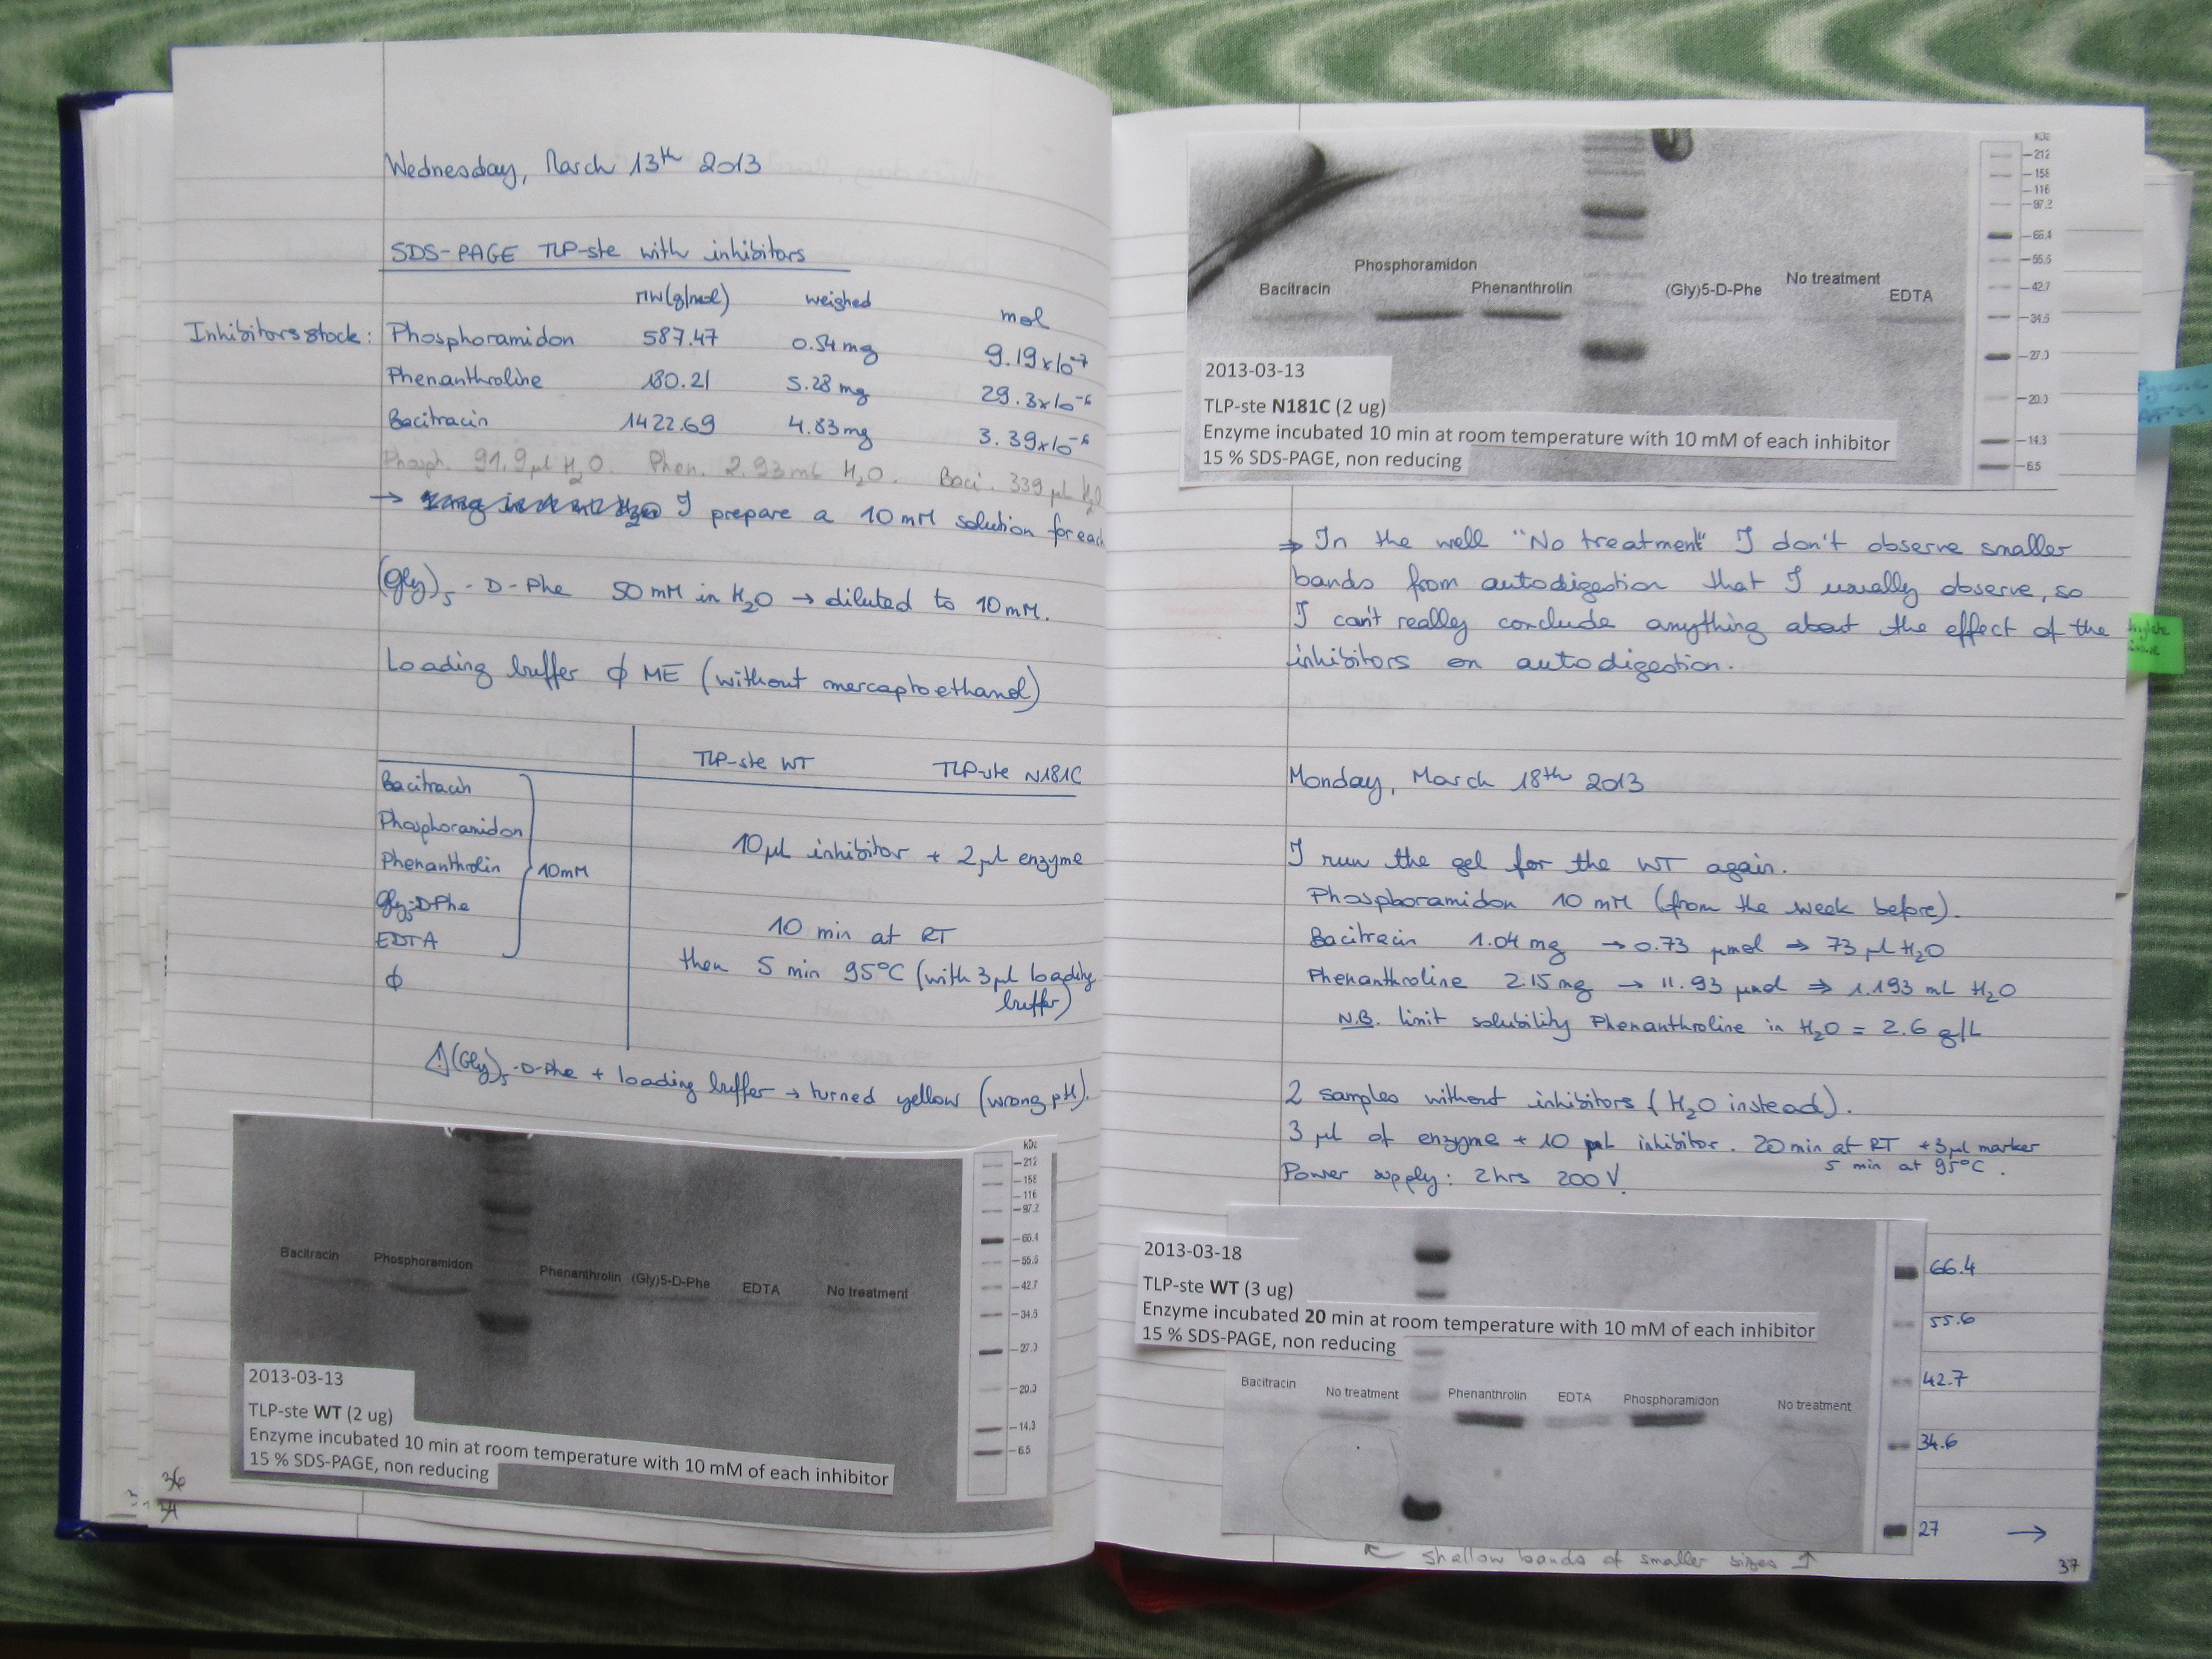 Wednesday, March 13th 2013
SDS-PAGE TLP-ste with inhibitors
MW(g/mol) weighed mol
Inhibitors stock: Phosphoramidon 587.47 0.54 mg 9.19x10-7
Phenanthroline 180.21 5.28 mg 29.3x10-6
Bacitracin 1422.69 4.83 mg 3.39x10-6
Phosph. 91.9 µl H2O. Phen. 2.93 mL H2O. Baci. 339 µL H2O
→ I prepare a 10 mM solution for each
(Gly)5-D-Phe 50 mM in H2O → diluted to 10 mM.
Loading buffer ϕ ME (without mercaptoethanol)
TLP-ste WT TLP-ste N181C
Bacitracin
Phosphoramidon
Phenanthrolin
Gly5-DPhe
EDTA
ϕ
10mM
10 µL inhibitor + 2 µL enzyme
10 min at RT
then 5 min 95°C (with 3 µL loading
buffer)
⚠ (Gly)5-D-Phe + loading buffer → turned yellow (wrong pH).
Bacitracin Phosphoramidon Phenanthrolin (Gly)5-D-Phe EDTA No treatment
kDa
212
158
116
97.2
66.4
55.6
42.7
34.6
27.0
20.0
14.3
6.5
2013-03-13
TLP-ste WT (2 ug)
Enzyme incubated 10 min at room temperature with 10 mM of each inhibitor
15 % SDS-PAGE, non reducing
36
34
Bacitracin Phosphoramidon Phenanthrolin (Gly)5-D-Phe No treatment EDTA
kDa
212
158
116
97.2
66.4
55.6
42.7
34.6
27.0
20.0
14.3
6.5
2013-03-13
TLP-ste N181C (2 ug)
Enzyme incubated 10 min at room temperature with 10 mM of each inhibitor
15 % SDS-PAGE, non reducing
⇒ In the well "No treatment" I don't observe smaller
bands from autodigestion that I usually observe, so
I can't really conclude anything about the effect of the
inhibitors on autodigestion.
Monday, March 18th 2013
I run the gel for the WT again.
Phosphoramidon 10 mM (from the week before).
Bacitracin 1.04 mg → 0.73 µmol ⇒ 73 µl H2O
Phenanthroline 2.15 mg → 11.93 µmol ⇒ 1.193 mL H2O
N.B. limit solubility Phenanthroline in H2O = 2.6 g/L
2 samples without inhibitors (H2O instead).
3 µl of enzyme + 10 µL inhibitor. 20 min at RT + 3 µl marker
5 min at 95°C.
Power supply: 2hrs 200 V.
2013-03-18
TLP-ste WT (3 ug)
Enzyme incubated 20 min at room temperature with 10 mM of each inhibitor
15 % SDS-PAGE, non reducing
Bacitracin No treatment Phenanthrolin EDTA Phosphoramidon No treatment
66.4
55.6
42.7
34.6
27 →
↖ shallow bands of smaller sizes ↑
37